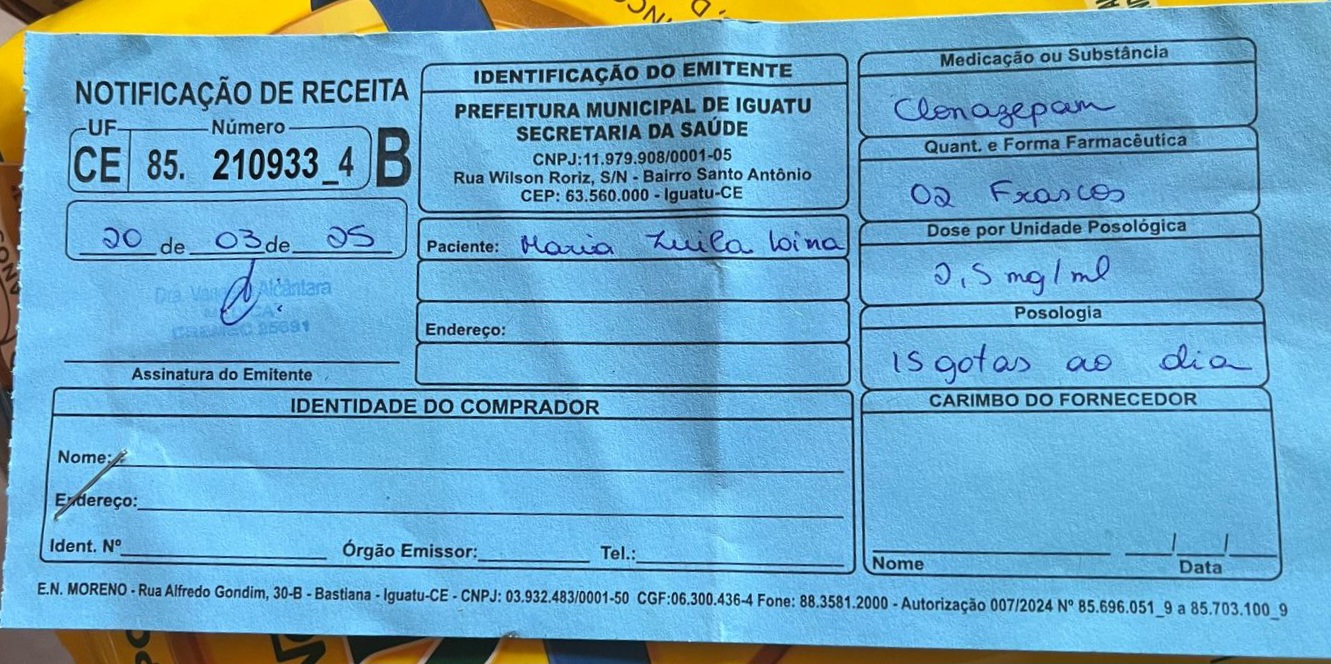 NOTIFICAÇÃO DE RECEITA
UF Número
CE 85. 210933_4 B
20 de 03 de 25
Dra. Alcântara
25691
Assinatura do Emitente
IDENTIFICAÇÃO DO EMITENTE
PREFEITURA MUNICIPAL DE IGUATU
SECRETARIA DA SAÚDE
CNPJ:11.979.908/0001-05
Rua Wilson Roriz, S/N - Bairro Santo Antônio
CEP: 63.560.000 - Iguatu-CE
Paciente: Maria Zuila
Endereço:
Medicação ou Substância
Clonazepam
Quant. e Forma Farmacêutica
02 Frascos
Dose por Unidade Posológica
2,5 mg/ml
Posologia
15 gotas ao dia
IDENTIDADE DO COMPRADOR
Nome:
Endereço:
Ident. Nº Órgão Emissor: Tel.:
CARIMBO DO FORNECEDOR
Nome Data
E.N. MORENO - Rua Alfredo Gondim, 30-B - Bastiana - Iguatu-CE - CNPJ: 03.932.483/0001-50 CGF:06.300.436-4 Fone: 88.3581.2000 - Autorização 007/2024 Nº 85.696.051_9 a 85.703.100_9